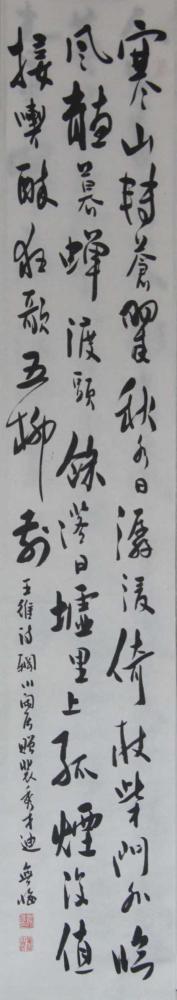 寒山轉蒼翠秋水日潺湲倚杖柴門外臨
風聽暮蟬渡頭餘落日墟里上孤煙復值
接輿醉狂歌五柳前
王維詩輞川閒居贈裴秀才迪